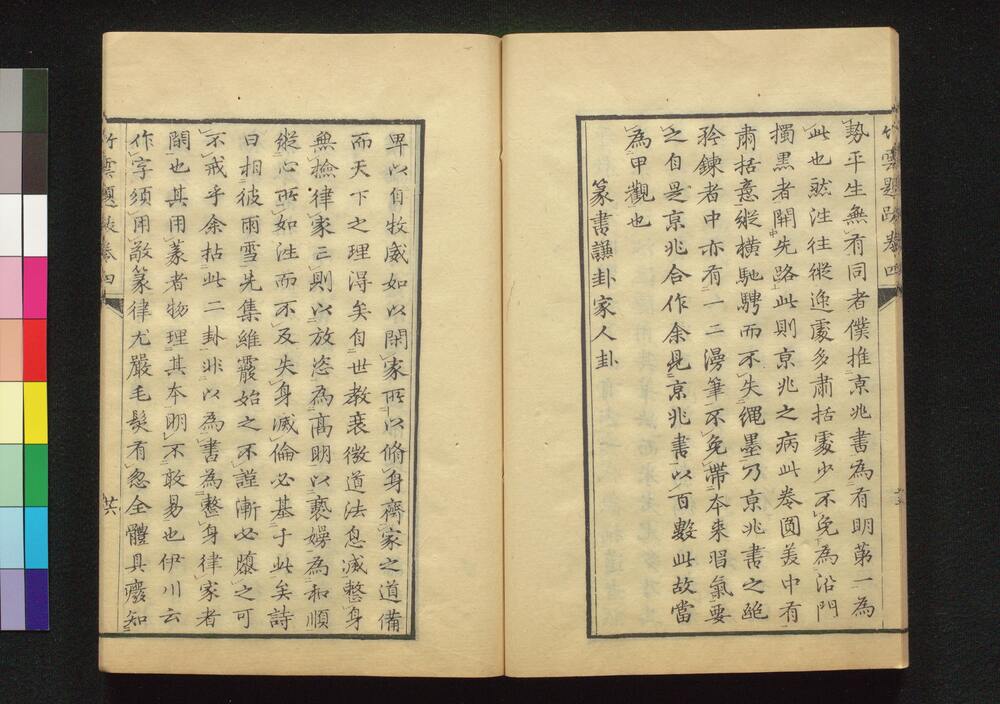 竹雲題跋卷四
勢平生無有同者僕推京兆書為有明第一為
此也然往往縱逸處多肅括處少不免為沿門
擉黑者開先路此則京兆之病此卷圓美中有
肅括意縱横馳騁而不失繩墨乃京兆書之絕
矜鍊者中亦有一二漫筆不免帶本來習氣要
之自是京兆合作余見京兆書以百數此故當
為甲觀也
篆書謙卦家人卦
卑以自牧威如以閑家所以脩身齊家之道備
而天下之理得矣自世教衰微道法息滅整身
無撿律家亡則以放恣為高明以褻嫚為和順
縱心所如往而不及失身滅倫必基于此矣詩
曰相彼雨雪先集維霰始之不謹漸必隳之可
不戒乎余拈此二卦非以為書為整身律家者
閑也其用篆者物理其本明不敢易也伊川云
作字須用敬篆律尤嚴毛髮有忽全體具癈知
竹雲題跋卷四
廿六